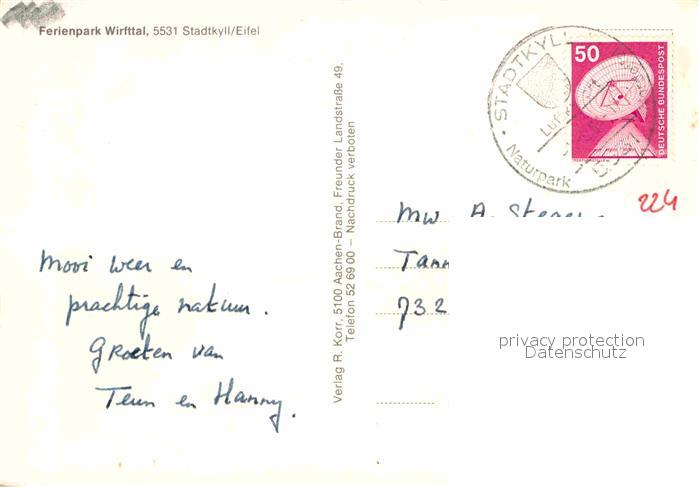 Ferienpark Wirfttal, 5531 Stadtkyll/Eifel
STADTKYLL
Naturpark
50
DEUTSCHE BUNDESPOST
224
Mw A.
Tann
732
Mooi weer en
prachtige natuur.
Groeten van
Teun en Hanny.
Verlag R. Korr, 5100 Aachen-Brand, Freunder Landstraße 49,
Telefon 52 69 00 – Nachdruck verboten
privacy protection
Datenschutz